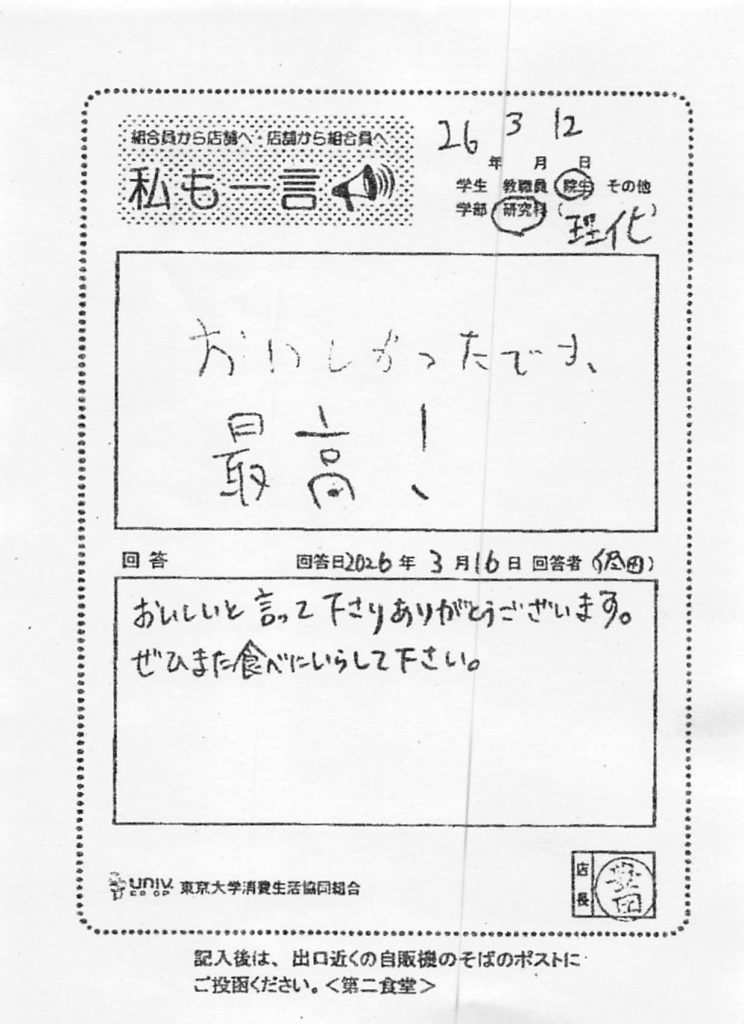 組合員から店舗へ・店舗から組合員へ
私も一言
26 3 12
年 月 日
学生 教職員 院生 その他
学部 研究科 (理化)
おいしかったです、
最高!
回答
回答日2026年 3月16日 回答者
おいしいと言って下さりありがとうございます。
ぜひまた食べにいらして下さい。
univ. CO-OP 東京大学消費生活協同組合
店長
豊田
記入後は、出口近くの自販機のそばのポストに
ご投函ください。<第二食堂>